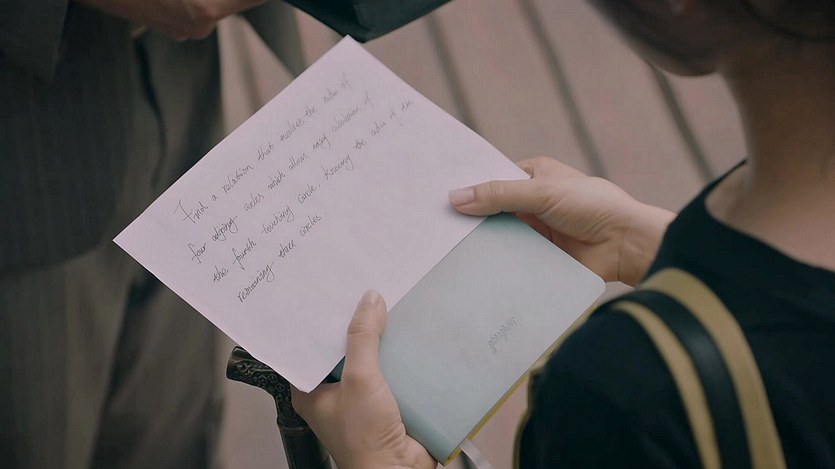 Find a relation that involves the radii of
four adjoing circles which allow easy calculation of
the fourth touching circle. Knowing the radii of the
remaining three circles